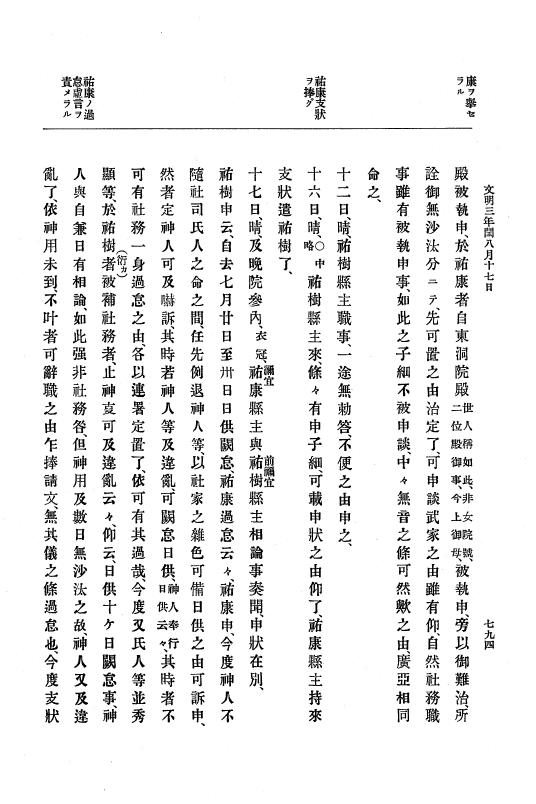 文明三年閏八月十七日
七九四
康ヲ擧セ
ラル
祐康支狀
ヲ捧グ
祐康ノ過
怠虛言ヲ
責メラル
殿被執申、於祐康者自東洞院殿世人稱如此、非女院號、二位殿御事、今上御母、被執申、旁以御難治、所
詮御無沙汰分ニテ、先可置之由治定了、可申談武家之由雖有仰、自然社務職
事雖有被執申事、如此之子細不被申談、中々無音之條可然歟之由、廣亞相同
命之、
十二日、晴、祐樹縣主職事、一途無勅答、不便之由申之、
十六日、晴、〇中略祐樹縣主來、條々有申子細、可載申狀之由仰了、祐康縣主持來
支狀遣祐樹了、
十七日、晴、及晚院參內、衣冠、祐康縣主禰宜與祐樹縣主前禰宜相論事奏聞、申狀在別、
祐樹申云、自去七月廿日至卅日日供闕怠、祐康過怠云々、祐康申、今度神人不
隨社司氏人之命之間、任先例退神人等、以社家之雜色可備日供之由可訴申、
然者定神人可及嚇訴、其時若神人等及違亂、可闕怠日供、神人奉行日供云々、其時者不
可有社務一身過怠之由、各以連署定置了、依可有其過哉、今度又氏人等並秀
顯等、於祐樹者(衍カ)被補社務者、止神亊可及違亂云々、仰云、日供十ケ日闕怠事、神
人與自兼日有相論、如此强非社務咎、但神用及數日無沙汰之故、神人又及違
亂了、依神用未到、不叶者可辭職之由乍捧請文、無其儀之條過怠也、今度支狀